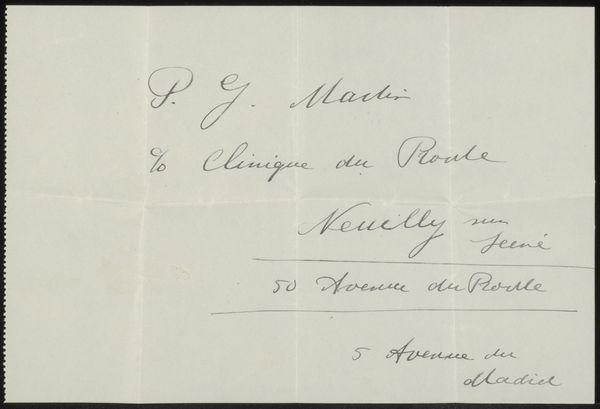 P. J. Martin
c/o Clinique du Roule
Neuilly sur
Seine
50 Avenue du Roule
5 Avenue du
Madrid